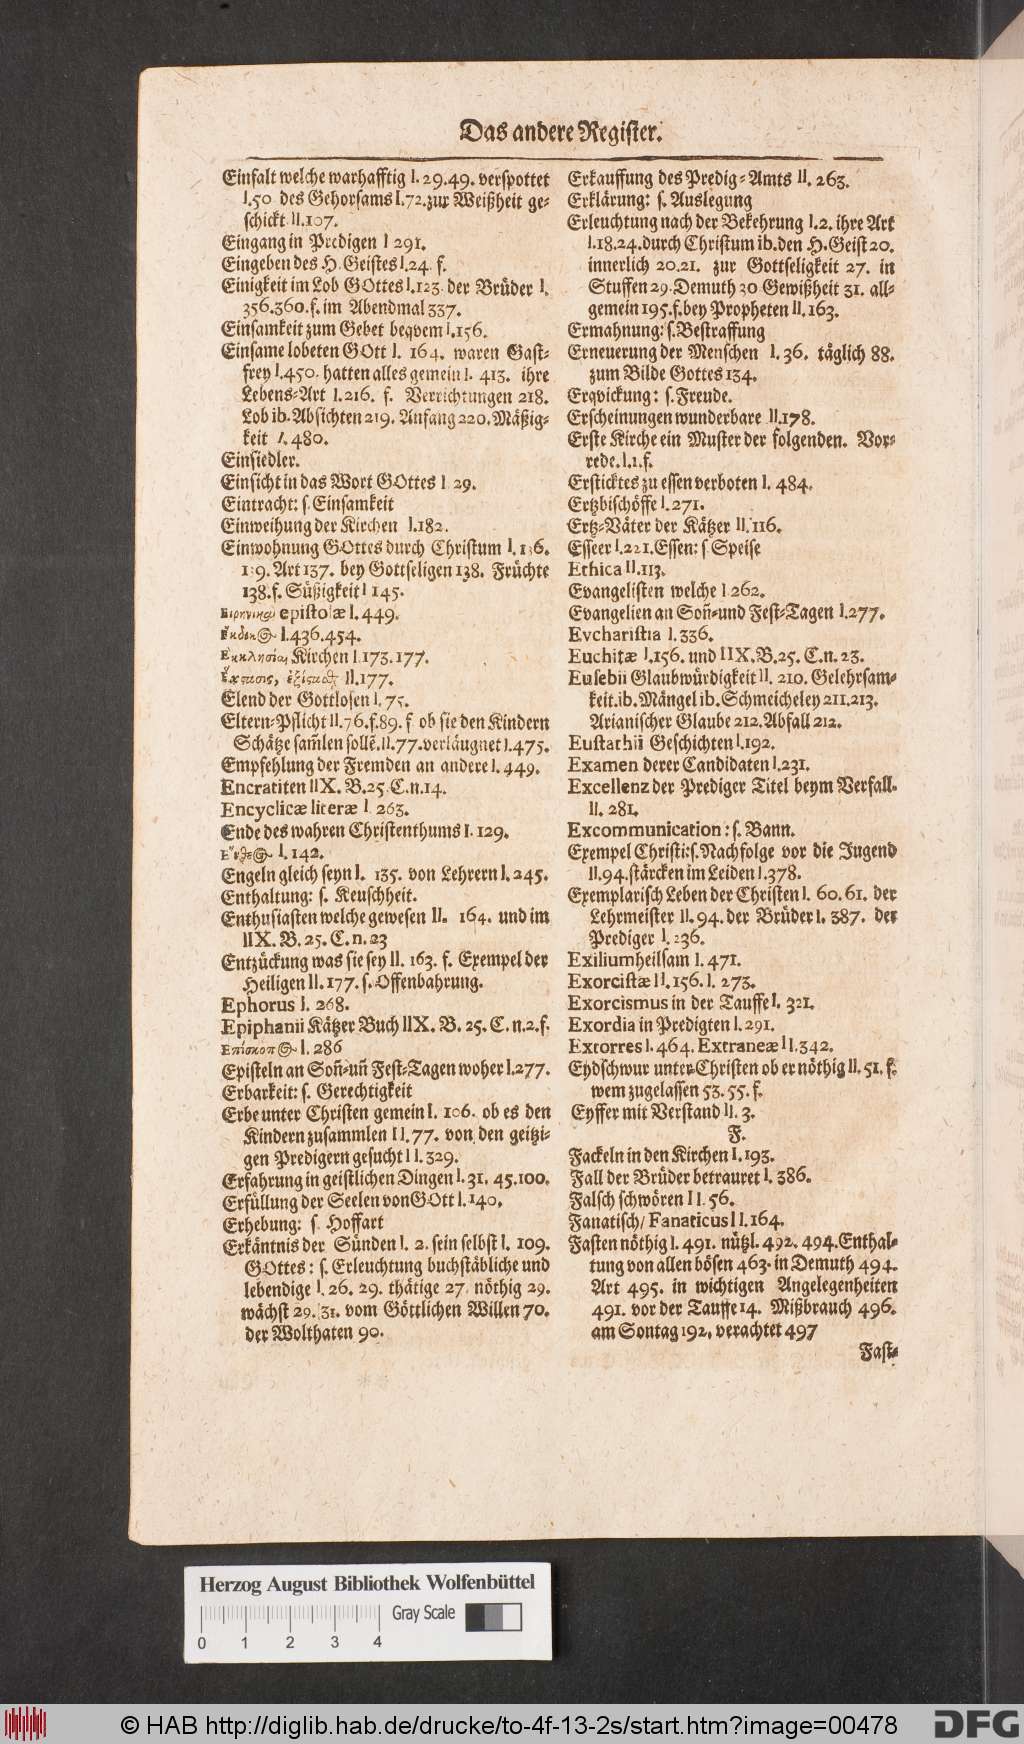 Das andere Register.
Einfalt welche warhafftig I. 29.49. verspottet
I.50. des Gehorsams I.72. zur Weißheit ge-
schickt II.107.
Eingang in Predigen I 291.
Eingeben des H. Geistes I.24. f.
Einigkeit im Lob GOttes I.123. der Brüder I.
356.360.f. im Abendmal 337.
Einsamkeit zum Gebet beqvem I.156.
Einsame lobeten GOtt I. 164. waren Gast-
frey I.450. hatten alles gemein I. 413. ihre
Lebens-Art I.216. f. Verrichtungen 218.
Lob ib. Absichten 219. Anfang 220. Mäßig-
keit I. 480.
Einsiedler.
Einsicht in das Wort GOttes I 29.
Eintracht: s. Einsamkeit
Einweihung der Kirchen I.182.
Einwohnung GOttes durch Christum I. 136.
139. Art 137. bey Gottseligen 138. Früchte
138.f. Süßigkeit I 145.
epistolæ I. 449.
I.436.454.
Εκκλησίαι Kirchen I.173.177.
II.177.
Elend der Gottlosen I. 75.
Eltern-Pflicht II.76.f.89. f ob sie den Kindern
Schätze sam̃len sollẽ. II.77. verläugnet I.475.
Empfehlung der Fremden an andere I. 449.
Encratiten IIX. B.25. C.n.14.
Encyclicæ literæ I. 263.
Ende des wahren Christenthums I. 129.
I. 142.
Engeln gleich seyn I. 135. von Lehrern I. 245.
Enthaltung: s. Keuschheit.
Enthusiasten welche gewesen II. 164. und im
IIX. B. 25. C. n. 23
Entzückung was sie sey II. 163. f. Exempel der
Heiligen II. 177. s. Offenbahrung.
Ephorus I. 268.
Epiphanii Kätzer Buch IIX. B. 25. C. n.2.f.
I. 286
Episteln an Soñ-uñ Fest-Tagen woher I.277.
Erbarkeit: s. Gerechtigkeit
Erbe unter Christen gemein I. 106. ob es den
Kindern zusammlen II. 77. von den geitzi-
gen Predigern gesucht II. 329.
Erfahrung in geistlichen Dingen I. 31. 45.100.
Erfüllung der Seelen von GOtt I. 140.
Erhebung: s. Hoffart
Erkäntnis der Sünden I. 2. sein selbst I. 109.
GOttes: s. Erleuchtung buchstäbliche und
lebendige I. 26. 29. thätige 27. nöthig 29.
wächst 29. 31. vom Göttlichen Willen 70.
der Wolthaten 90.
Erkauffung des Predig-Amts II. 263.
Erklärung: s. Auslegung
Erleuchtung nach der Bekehrung I. 2. ihre Art
I.18.24. durch Christum ib. den H. Geist 20.
innerlich 20.21. zur Gottseligkeit 27. in
Stuffen 29. Demuth 30 Gewißheit 31. all-
gemein 195.f. bey Propheten II. 163.
Ermahnung: s. Bestraffung
Erneuerung der Menschen I. 36. täglich 88.
zum Bilde Gottes 134.
Erqvickung: s. Freude.
Erscheinungen wunderbare II.178.
Erste Kirche ein Muster der folgenden. Vor-
rede. I.1.f.
Ersticktes zu essen verboten I. 484.
Ertzbischöffe I. 271.
Ertz-Väter der Kätzer II. 116.
Esseer I.221. Essen: s Speise
Ethica II.113.
Evangelisten welche I 262.
Evangelien an Soñ-und Fest-Tagen I.277.
Evcharistia I. 336.
Euchitæ I.156. und IIX. B. 25. C. n. 23.
Eusebii Glaubwürdigkeit II. 210. Gelehrsam-
keit. ib. Mängel ib. Schmeicheley 211.213.
Arianischer Glaube 212. Abfall 212.
Eustathii Geschichten I.192.
Examen derer Candidaten I.231.
Excellenz der Prediger Titel beym Verfall.
II. 281.
Excommunication: s. Bann.
Exempel Christi: s. Nachfolge vor die Jugend
II.94. stärcken im Leiden I.378.
Exemplarisch Leben der Christen I. 60.61. der
Lehrmeister II. 94. der Brüder I. 387. der
Prediger I. 236.
Exilium heilsam I. 471.
Exorcistæ II. 156. I. 273.
Exorcismus in der Tauffe I. 321.
Exordia in Predigten I. 291.
Extorres I. 464. Extraneæ II. 342.
Eydschwur unter Christen ob er nöthig II. 51. f.
wem zugelassen 53. 55. f.
Eyffer mit Verstand II. 3.
F.
Fackeln in den Kirchen I. 193.
Fall der Brüder betrauret I. 386.
Falsch schwören II. 56.
Fanatisch/ Fanaticus II. 164.
Fasten nöthig I. 491. nützl. 492. 494. Enthal-
tung von allen bösen 463. in Demuth 494.
Art 495. in wichtigen Angelegenheiten
491. vor der Tauffe 14. Mißbrauch 496.
am Sontag 192. verachtet 497
Fast-
Herzog August Bibliothek Wolfenbüttel
Gray Scale
0 1 2 3 4
© HAB http://diglib.hab.de/drucke/to-4f-13-2s/start.htm?image=00478
DFG